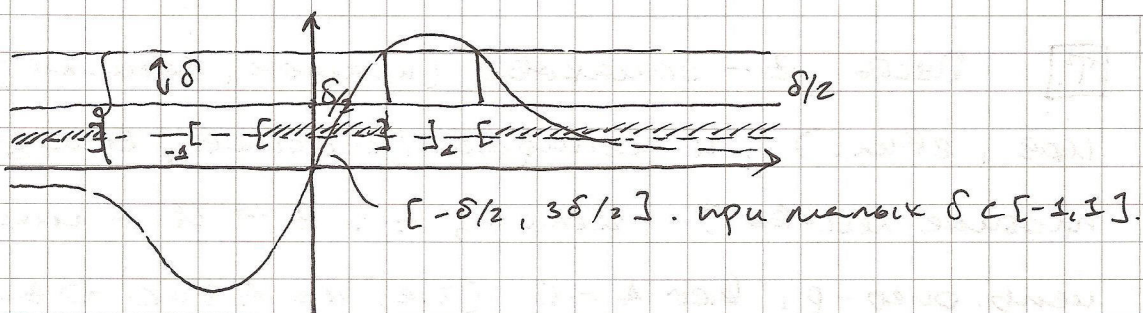 δ
δ/2
δ/2
-1
1
[-δ/2, 3δ/2]. при малых δ ⊂ [-1, 1].